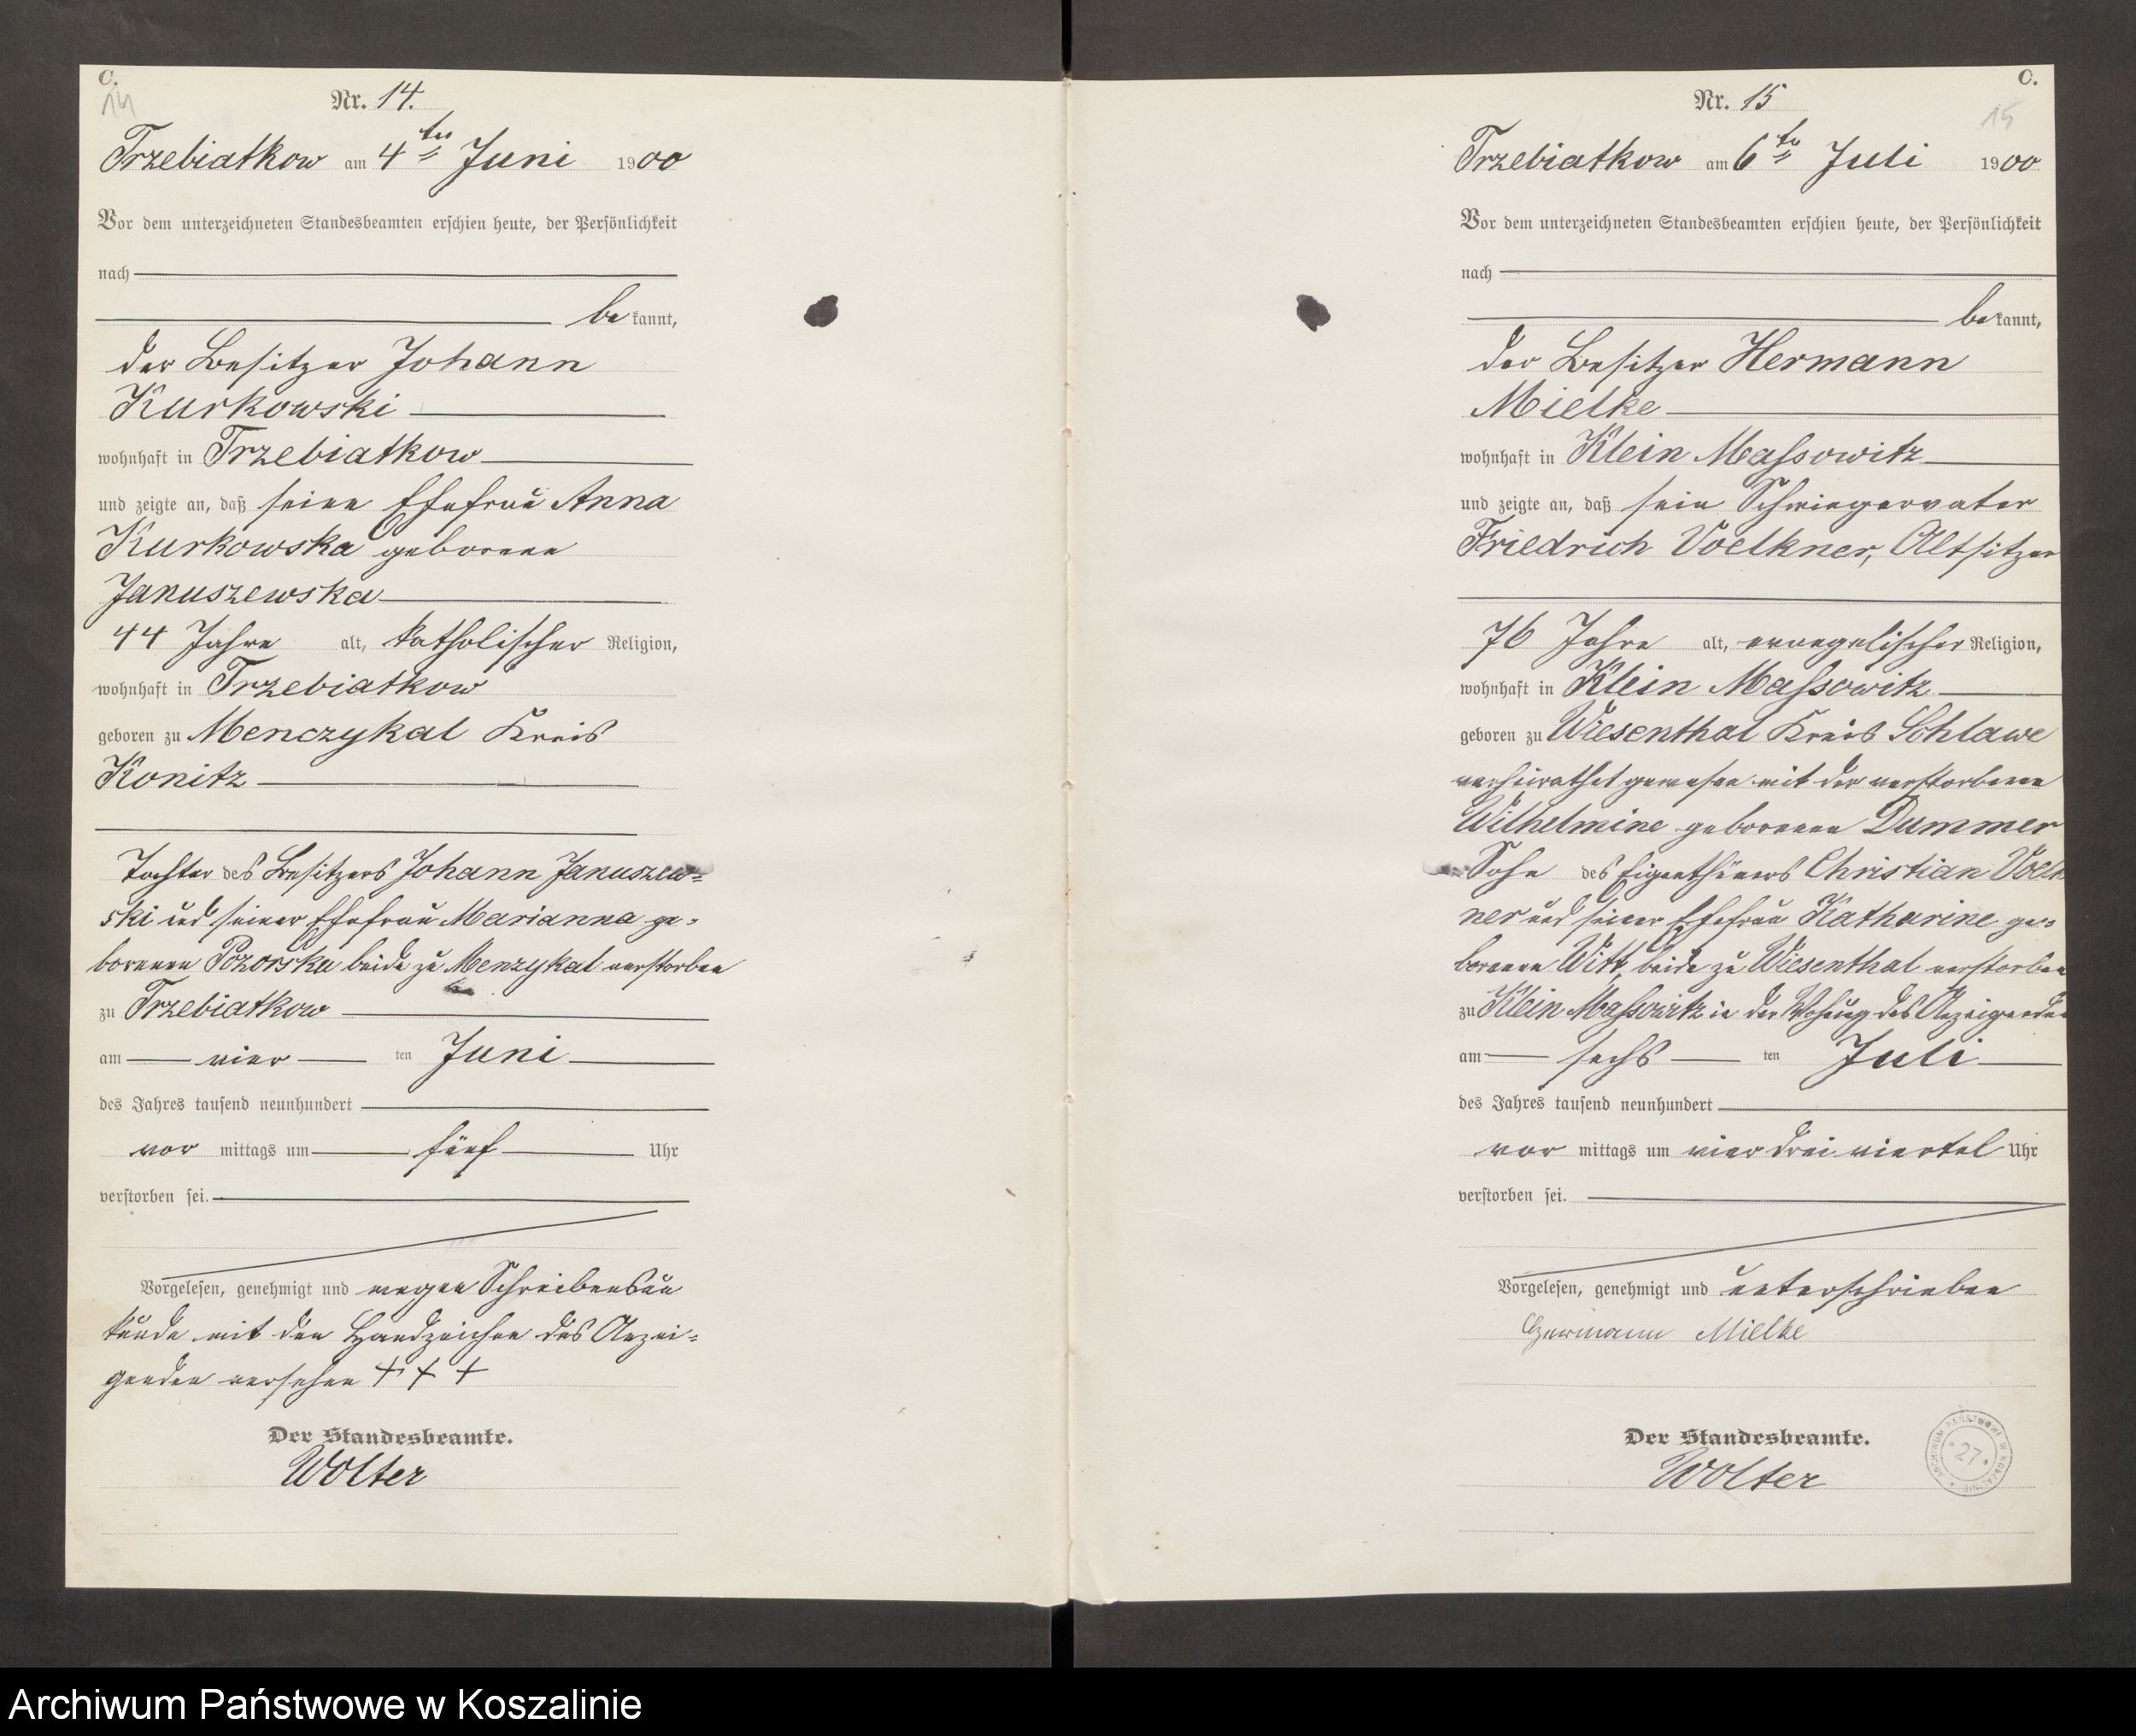 C.
14
Nr. 14.
Trzebiatkow am 4ten Juni 1900
Vor dem unterzeichneten Standesbeamten erschien heute, der Persönlichkeit
nach
be kannt,
der Besitzer Johann
Kurkowski
wohnhaft in Trzebiatkow
und zeigte an, daß seine Ehefrau Anna
Kurkowska geborene
Januszewska
44 Jahre alt, katholischer Religion,
wohnhaft in Trzebiatkow
geboren zu Menczykal Kreis
Konitz
Tochter des Besitzers Johann Januszew=
ski und seiner Ehefrau Marianna ge=
borenen Pozorska beide zu Menzykal verstorben
zu Trzebiatkow
am vier ten Juni
des Jahres tausend neunhundert
vor mittags um fünf Uhr
verstorben sei.
Vorgelesen, genehmigt und wegen Schreibensun
kunde mit den Handzeichen des Anzei=
genden versehen + + +
Der Standesbeamte.
Wolter
C.
15
Nr. 15
Trzebiatkow am 6ten Juli 1900
Vor dem unterzeichneten Standesbeamten erschien heute, der Persönlichkeit
nach
be kannt,
der Besitzer Hermann
Mielke
wohnhaft in Klein Massowitz
und zeigte an, daß sein Schwiegervater
Friedrich Voelkner, Altsitzer
76 Jahre alt, evangelischer Religion,
wohnhaft in Klein Massowitz
geboren zu Wiesenthal Kreis Schlawe
verheirathet gewesen mit der verstorbenen
Wilhelmine geborenen Dummer
Sohn des Eigenthümers Christian Voelk
ner und seiner Ehefrau Katharine ge=
borenen Witt, beide zu Wiesenthal verstorben
zu Klein Massowitz in der Wohnung des Anzeigenden
am sechs ten Juli
des Jahres tausend neunhundert
vor mittags um vier drei viertel Uhr
verstorben sei.
Vorgelesen, genehmigt und unterschrieben
Hermann Mielke
Der Standesbeamte.
Wolter
ARCHIWUM PAŃSTWOWE W KOSZALINIE
* 27 *
Archiwum Państwowe w Koszalinie